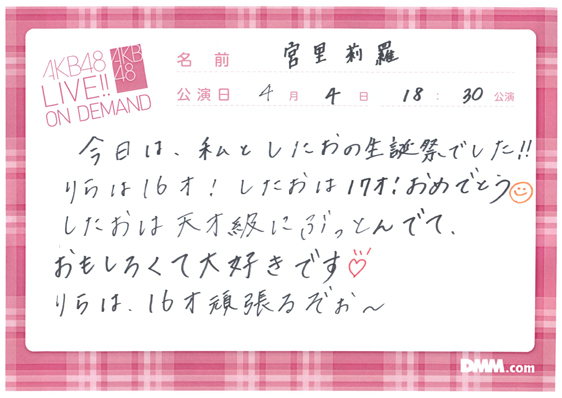 AKB48
LIVE!!
ON DEMAND
AKB
48
名前 宮里莉羅
公演日 4月 4日 18:30公演
今日は、私としたおの生誕祭でした!!
りらは16才! したおは17才!おめでとう
したおは天才級にぶっとんでて、
おもしろくて大好きです
りらは、16才頑張るぞぉ〜
DMM.com